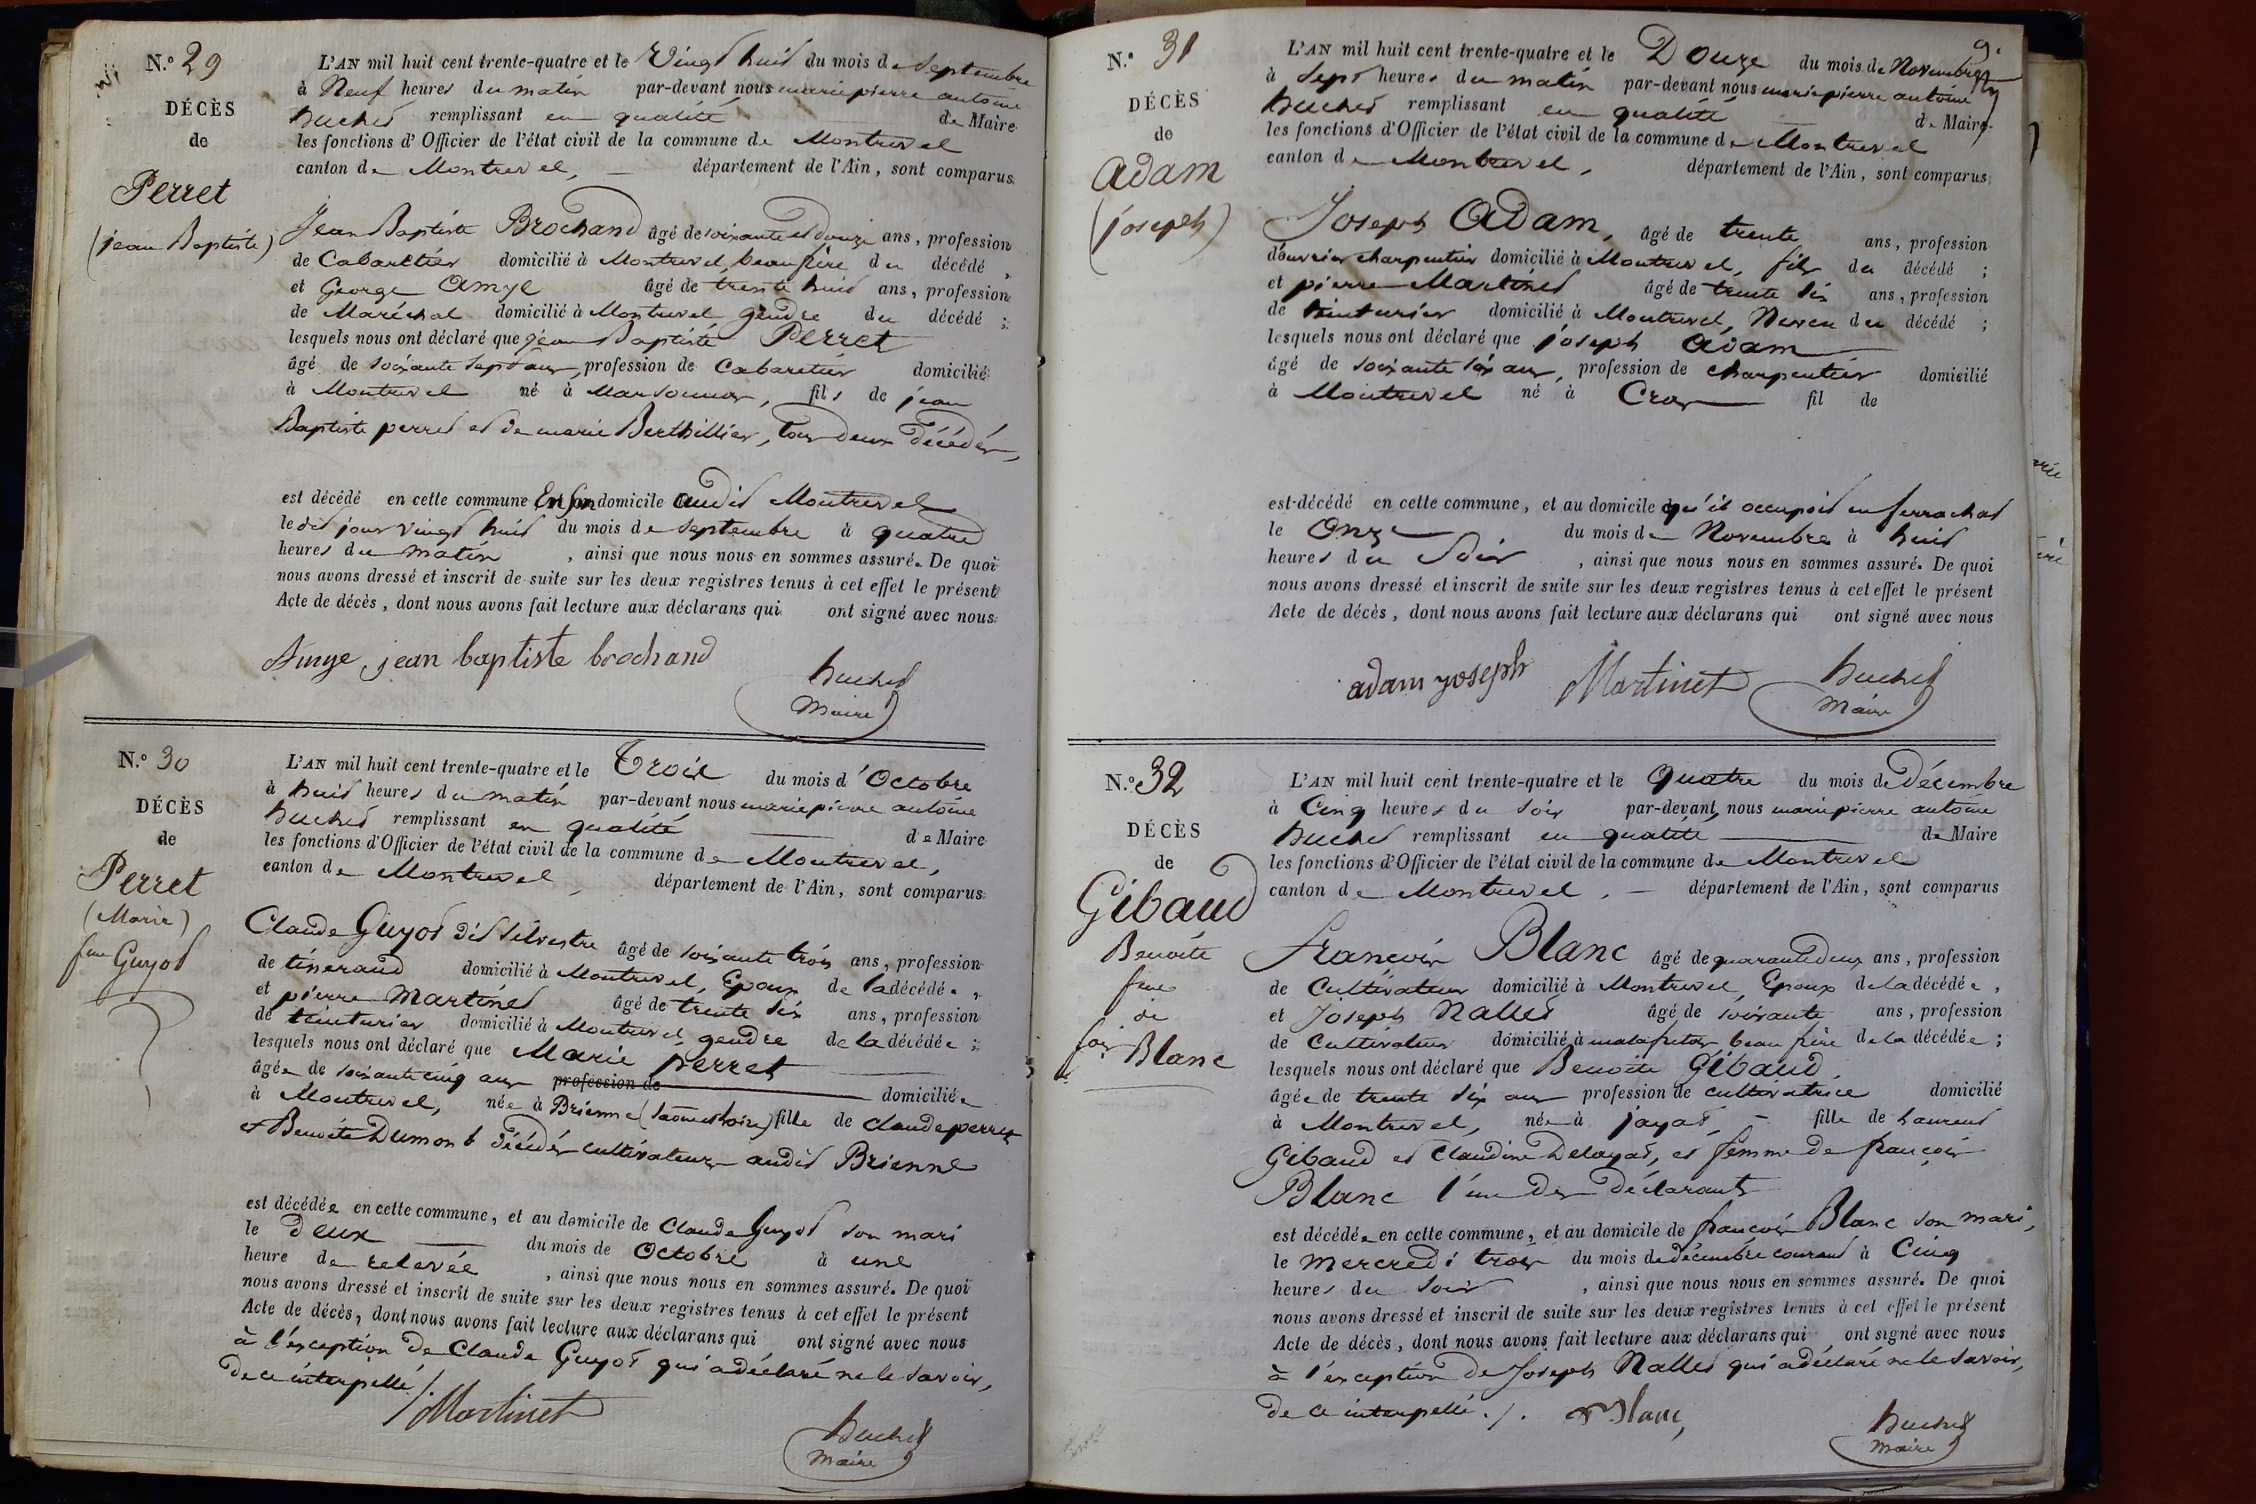 N.º 29
DÉCÈS
de
Perret
(jean Baptiste)
L'AN mil huit cent trente-quatre et le Vingt huit du mois de Septembre
à Neuf heures du matin par-devant nous marie pierre antoine
huchet remplissant en qualité de Maire
les fonctions d'Officier de l'état civil de la commune de Montrevel
canton de Montrevel, département de l'Ain, sont comparus
Jean Baptiste Brochand âgé de soixante et douze ans, profession
de Cabaretier domicilié à Montrevel, beau père du décédé,
et George Amye âgé de trente huit ans, profession
de Maréchal domicilié à Montrevel gendre du décédé ;
lesquels nous ont déclaré que jean Baptiste Perret
âgé de soixante sept ans, profession de Cabaretier domicilié
à Montrevel né à Marsonnas, fils de jean
Baptiste perret et de marie Berthillier, tous deux décédés,
est décédé en cette commune En son domicile audit Montrevel
le dit jour vingt huit du mois de Septembre à quatre
heures du matin, ainsi que nous nous en sommes assuré. De quoi
nous avons dressé et inscrit de suite sur les deux registres tenus à cet effet le présent
Acte de décès, dont nous avons fait lecture aux déclarans qui ont signé avec nous.
Amye jean baptiste brochand
huchet
Maire
N.º 30
DÉCÈS
de
Perret
(Marie)
fme Guyot
L'AN mil huit cent trente-quatre et le Trois du mois d'Octobre
à huit heures du matin par-devant nous marie pierre antoine
huchet remplissant en qualité de Maire
les fonctions d'Officier de l'état civil de la commune de Montrevel,
canton de Montrevel, département de l'Ain, sont comparus
Claude Guyot dit Silvestre âgé de soixante trois ans, profession
de tisserand domicilié à Montrevel, Epoux de la décédée,
et pierre Martinet âgé de trente six ans, profession
de teinturier domicilié à Montrevel gendre de la décédée ;
lesquels nous ont déclaré que Marie perret
âgée de soixante cinq ans profession de domiciliée
à Montrevel, née à Brienne (Saone et Loire) fille de claude perret
et Benoite Dumont décédés cultivateurs audit Brienne
est décédée en cette commune, et au domicile de Claude Guyot son mari
le deux du mois de Octobre à une
heure de relevée, ainsi que nous nous en sommes assuré. De quoi
nous avons dressé et inscrit de suite sur les deux registres tenus à cet effet le présent
Acte de décès, dont nous avons fait lecture aux déclarans qui ont signé avec nous
à l'exception de Claude Guyot qui a déclaré ne le savoir,
de ce interpellé ./.
Martinet
huchet
Maire
9.
N.º 31
DÉCÈS
de
Adam
(joseph)
L'AN mil huit cent trente-quatre et le Douze du mois de Novembre
à Sept heures du matin par-devant nous marie pierre antoine
huchet remplissant en qualité de Maire
les fonctions d'Officier de l'état civil de la commune de Montrevel
canton de Montrevel, département de l'Ain, sont comparus
Joseph Adam, âgé de trente ans, profession
d'ouvrier charpentier domicilié à Montrevel, fils du décédé ;
et pierre Martinet âgé de trente six ans, profession
de teinturier domicilié à Montrevel, Neveu du décédé ;
lesquels nous ont déclaré que joseph Adam
âgé de soixante six ans, profession de charpentier domicilié
à Montrevel né à Cras fil de
est décédé en cette commune, et au domicile qu'il occupoit en ferrachat
le Onze du mois de Novembre à huit
heures du Soir, ainsi que nous nous en sommes assuré. De quoi
nous avons dressé et inscrit de suite sur les deux registres tenus à cet effet le présent
Acte de décès, dont nous avons fait lecture aux déclarans qui ont signé avec nous
adam joseph Martinet huchet
Maire
N.º 32
DÉCÈS
de
Gibaud
Benoite
fme
de
fois Blanc
L'AN mil huit cent trente-quatre et le quatre du mois de Décembre
à Cinq heures du soir par-devant nous marie pierre antoine
huchet remplissant en qualité de Maire
les fonctions d'Officier de l'état civil de la commune de Montrevel
canton de Montrevel, département de l'Ain, sont comparus
francois Blanc âgé de quarante deux ans, profession
de Cultivateur domicilié à Montrevel, Epoux de la décédée,
et Joseph Nallet âgé de soixante ans, profession
de Cultivateur domicilié à malafretaz beau père de la décédée ;
lesquels nous ont déclaré que Benoite Gibaud,
âgée de trente six ans profession de cultivatrice domicilié
à Montrevel, née à jayat, fille de Laurent
Gibaud et Claudine Delayat, et femme de francois
Blanc l'un des déclarants
est décédée en cette commune, et au domicile de francois Blanc son mari,
le mercredi trois du mois de décembre courant à Cinq
heures du soir, ainsi que nous nous en sommes assuré. De quoi
nous avons dressé et inscrit de suite sur les deux registres tenus à cet effet le présent
Acte de décès, dont nous avons fait lecture aux déclarans qui ont signé avec nous
à l'exception de Joseph Nallet qui a déclaré ne le savoir,
de ce interpellé ./. Blanc
huchet
Maire